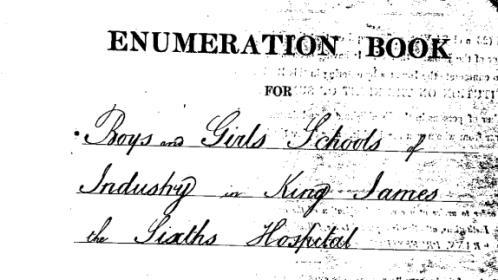 ENUMERATION BOOK
FOR
Boys and Girls Schools of
Industry in King James
the Sixths Hospital